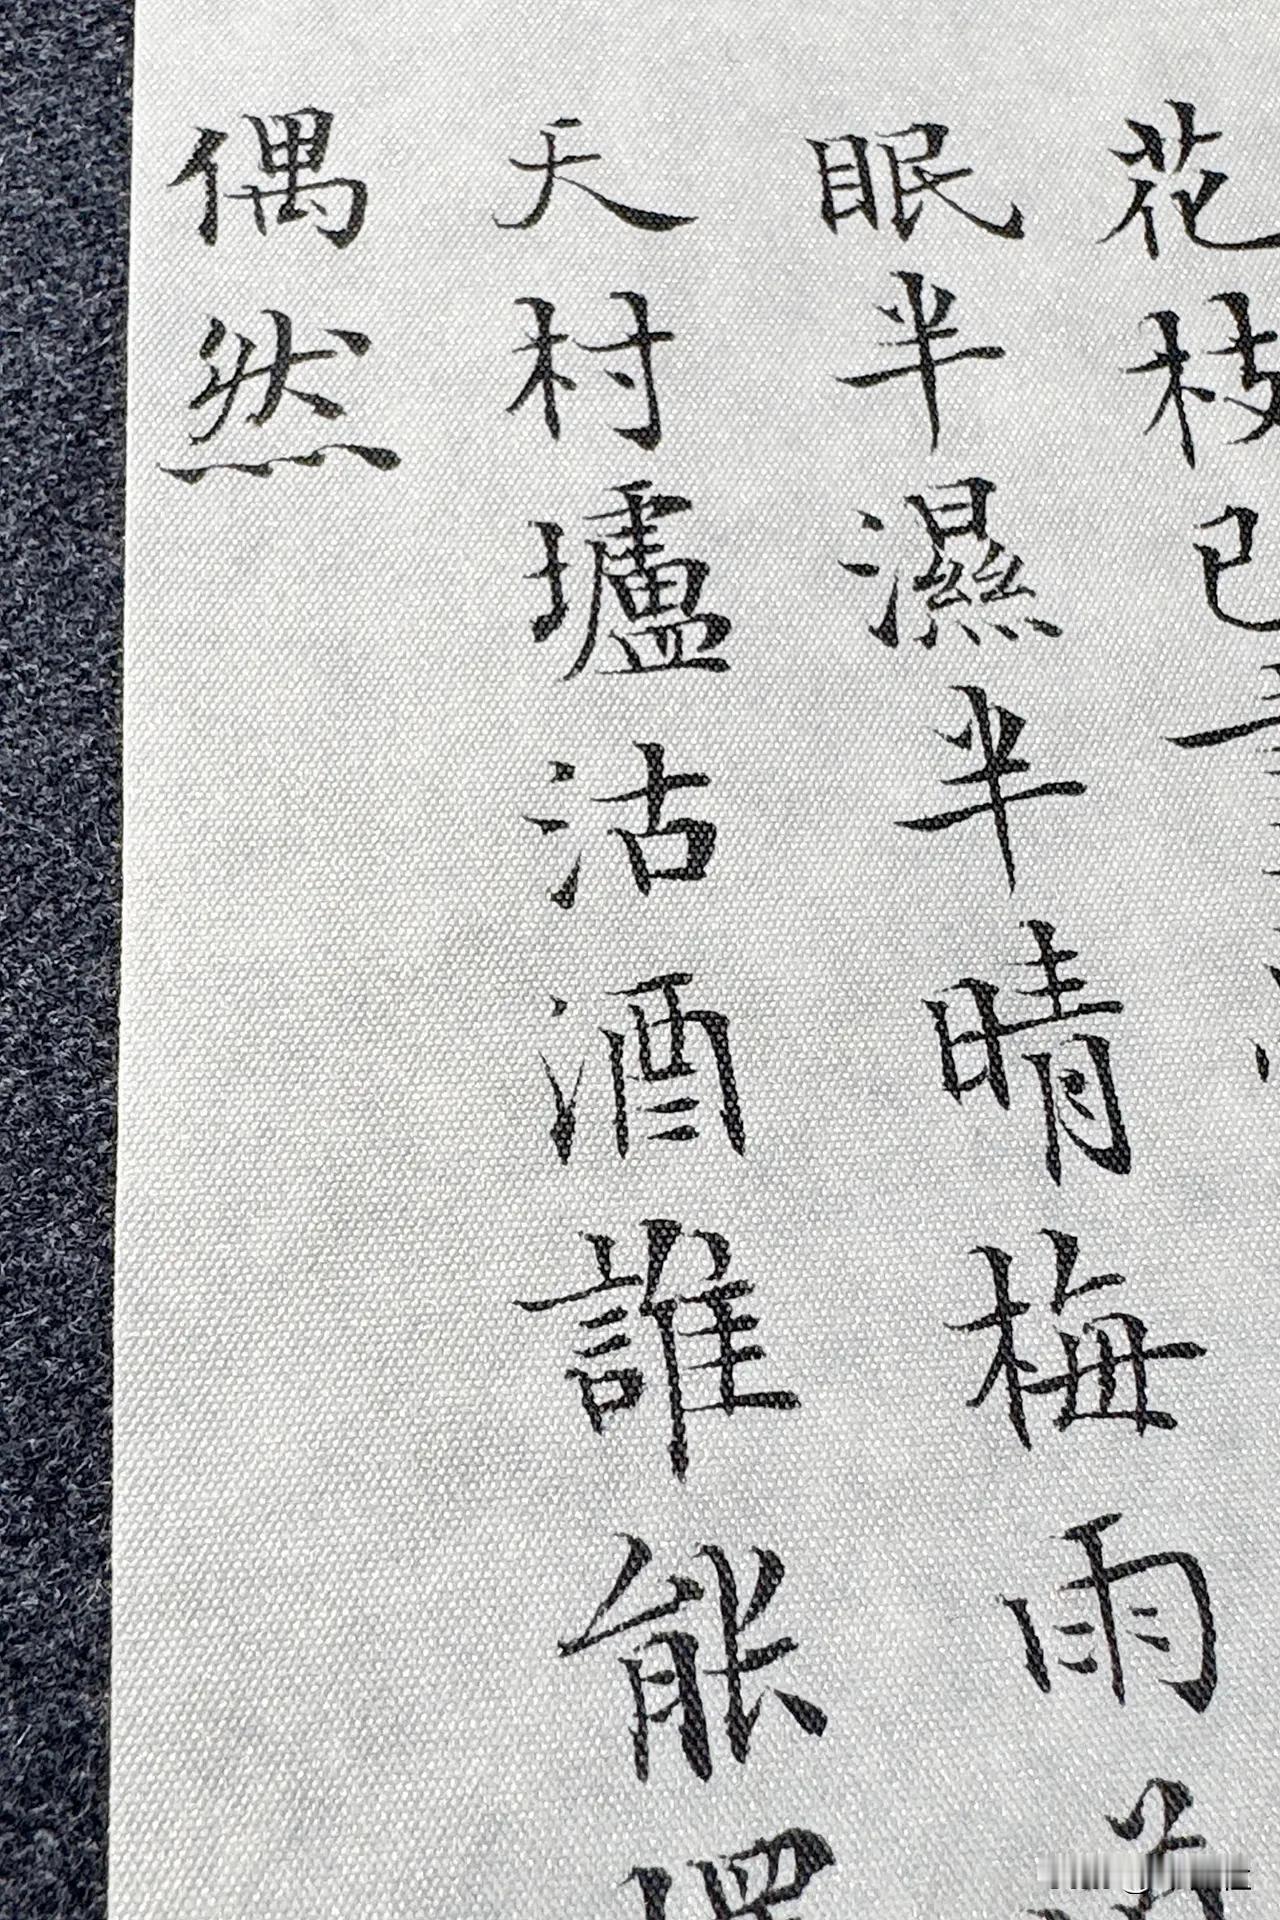 花枝已
眠半濕半晴梅雨
天村壚沽酒誰能
偶然